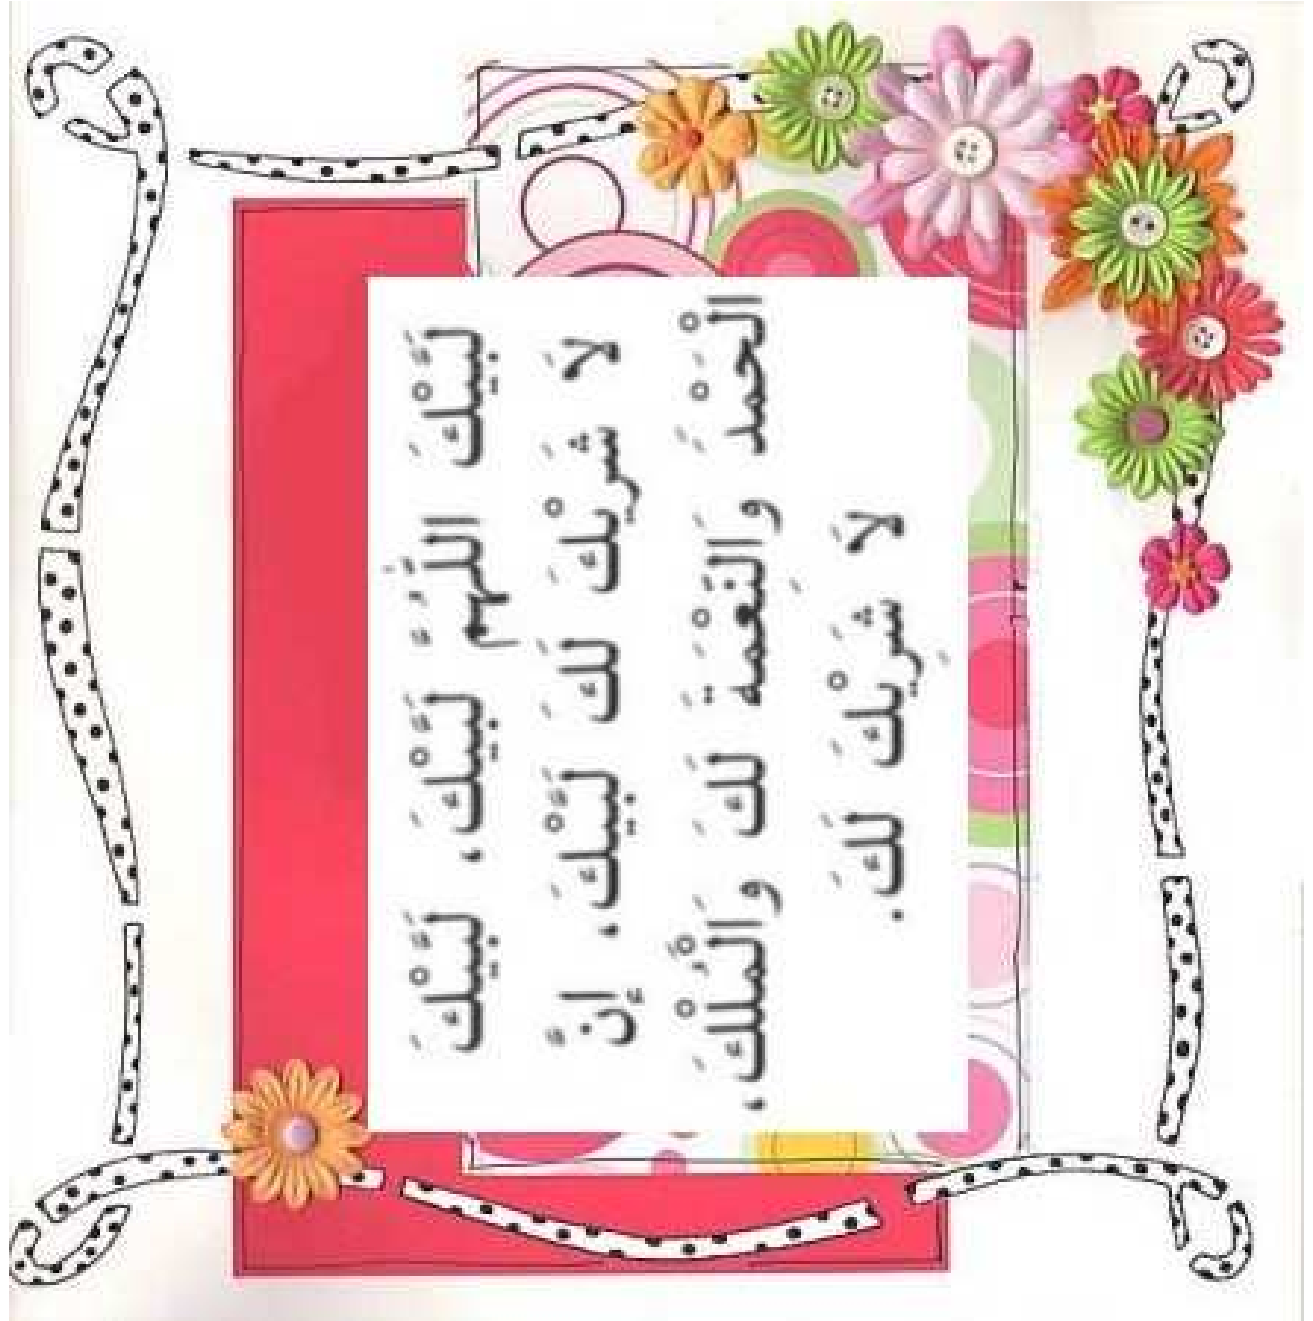 لَبَّيْكَ اللّٰهُمَّ لَبَّيْكَ، لَبَّيْكَ
لَا شَرِيْكَ لَكَ لَبَّيْكَ، إِنَّ
الْحَمْدَ وَالنِّعْمَةَ لَكَ وَالْمُلْكَ،
لَا شَرِيْكَ لَكَ.